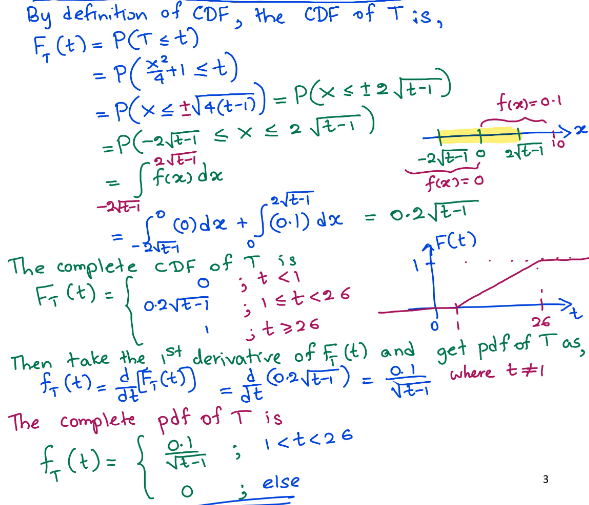 By definition of CDF, the CDF of T is,
F_T(t) = P(T ≤ t)
= P(x²/4 + 1 ≤ t)
= P(X ≤ ±√4(t-1)) = P(X ≤ ±2√t-1)
= P(-2√t-1 ≤ X ≤ 2√t-1)
f(x)=0.1
-2√t-1 0 2√t-1 10 x
f(x)=0
= ∫_{-2√t-1}^{2√t-1} f(x) dx
= ∫_{-2√t-1}^{0} (0) dx + ∫_{0}^{2√t-1} (0.1) dx = 0.2√t-1
The complete CDF of T is
F_T(t) = { 0 ; t < 1
0.2√t-1 ; 1 ≤ t < 26
1 ; t ≥ 26
F(t)
1
0 1 26 t
Then take the 1st derivative of F_T(t) and get pdf of T as,
f_T(t) = d/dt [F_T(t)] = d/dt (0.2√t-1) = 0.1/√t-1 where t ≠ 1
The complete pdf of T is
f_T(t) = { 0.1/√t-1 ; 1 < t < 26
0 ; else
3